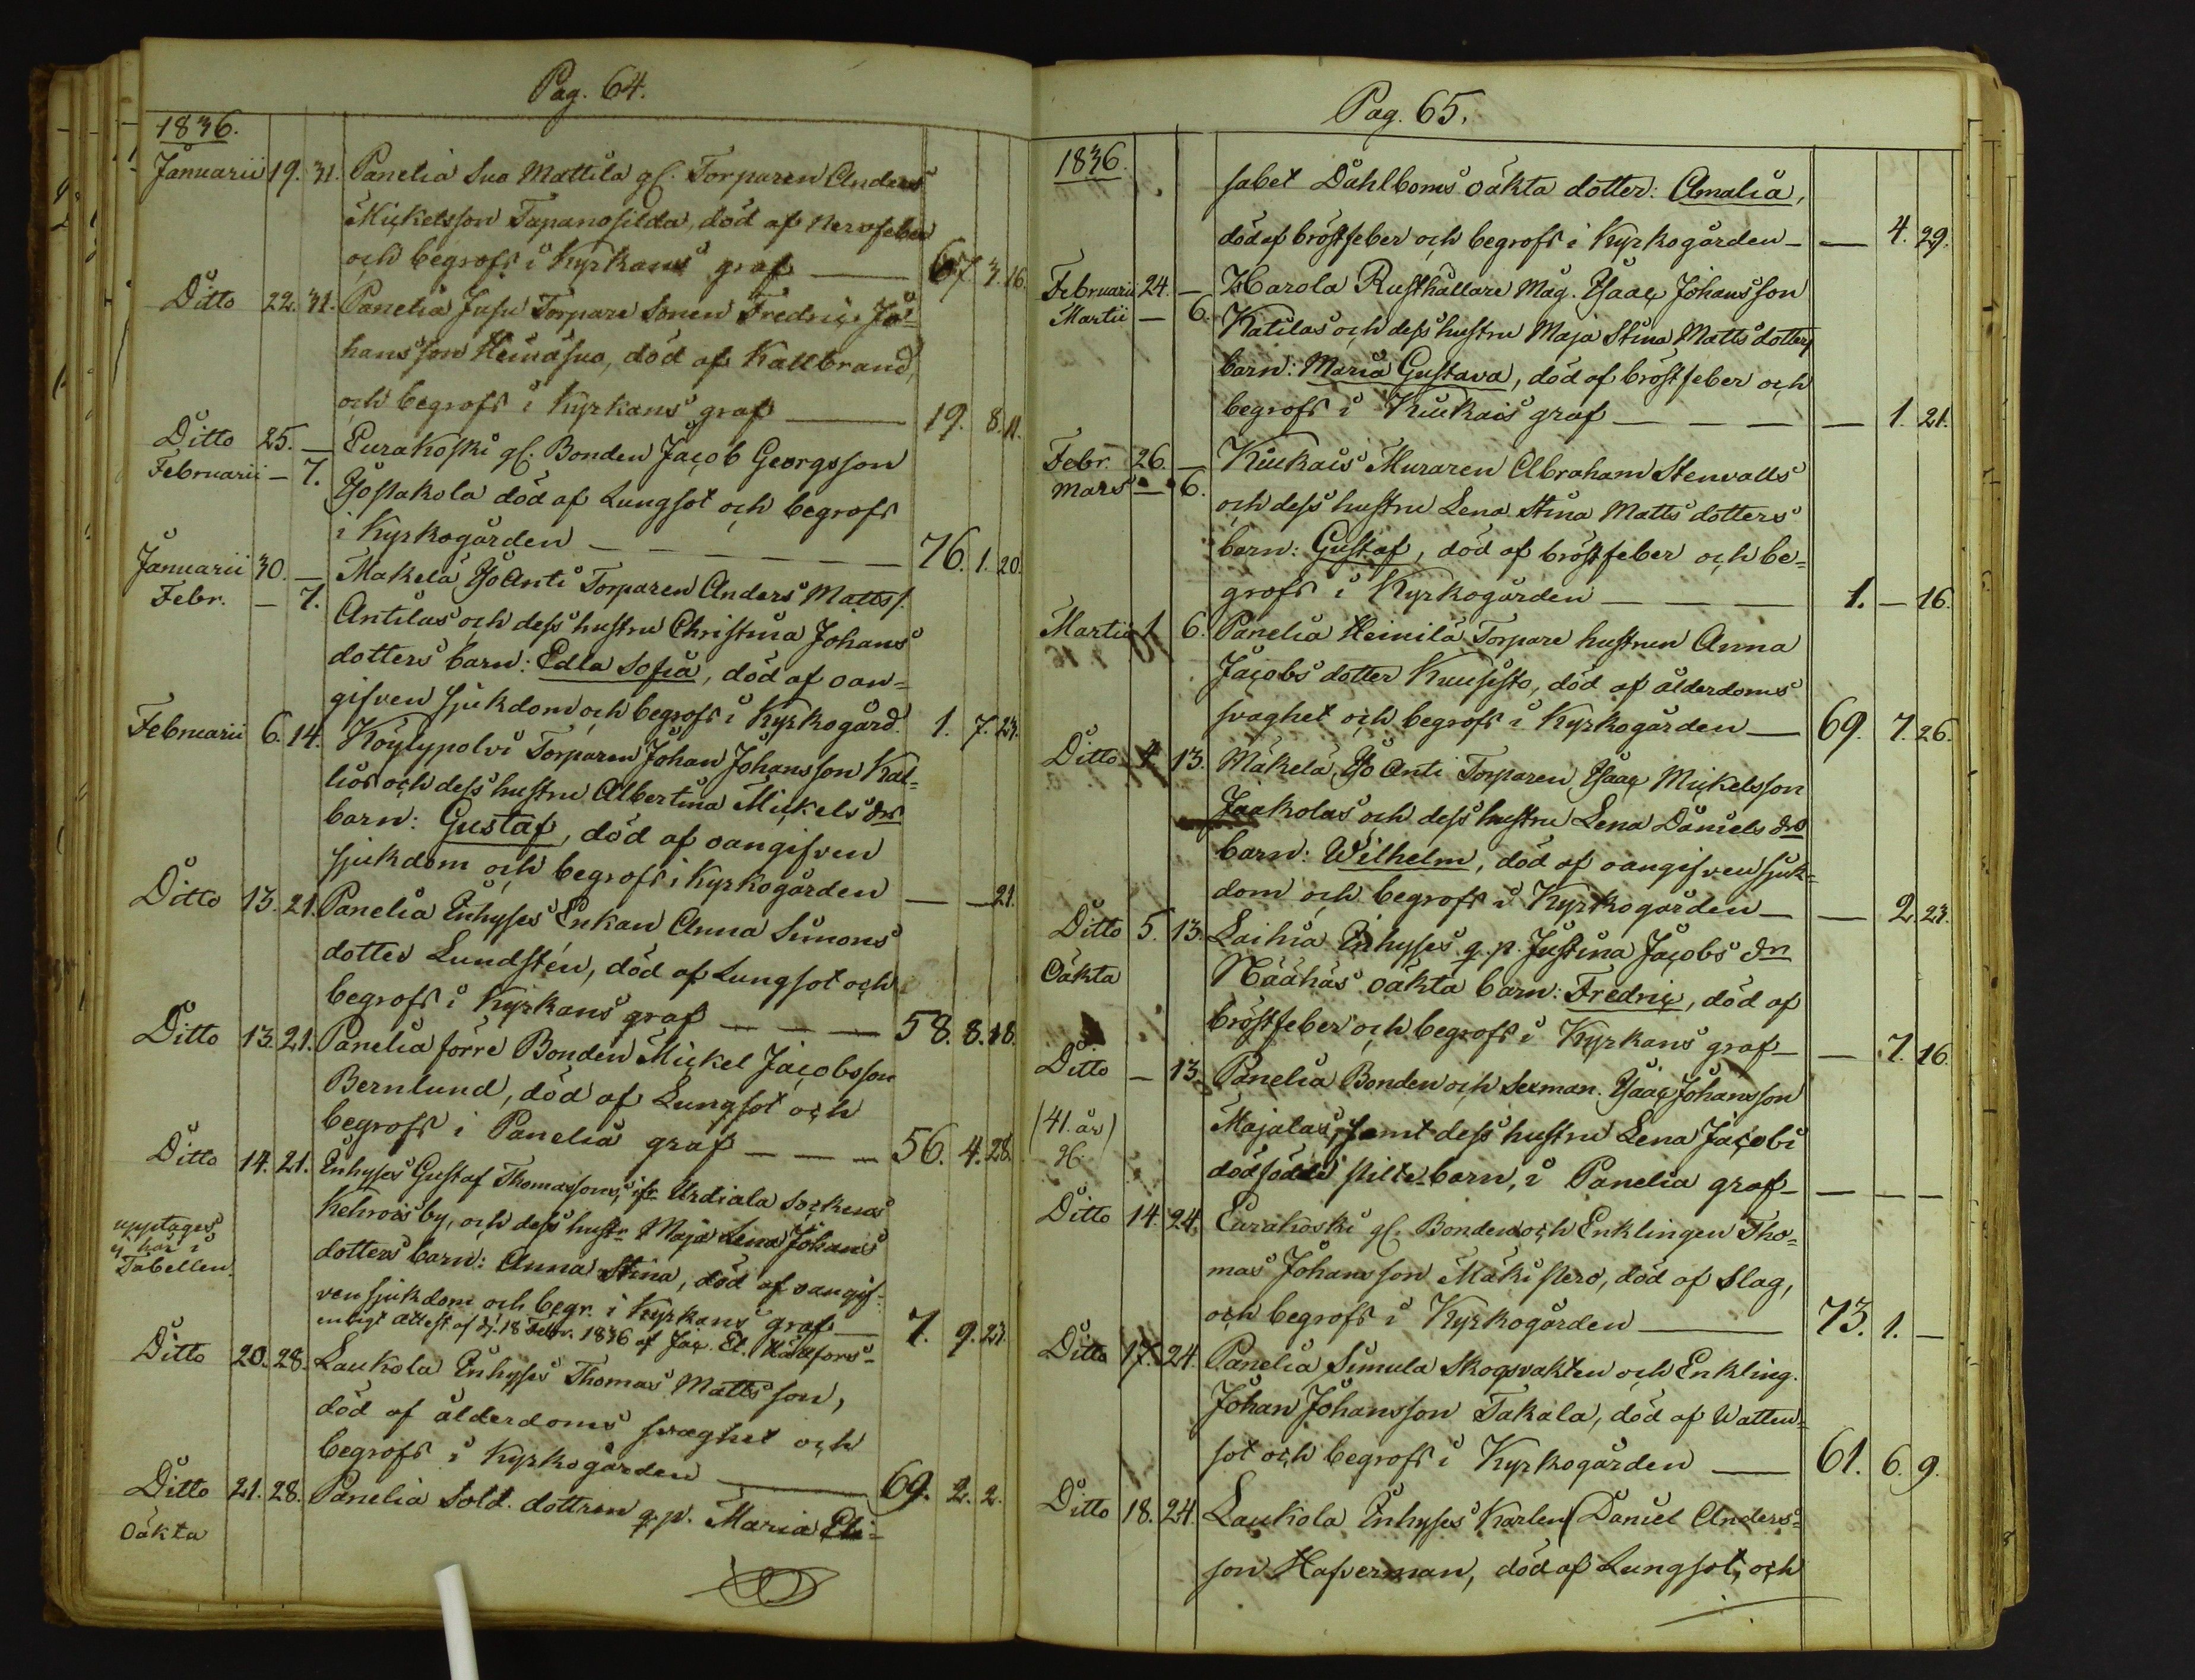 Pag. 64.
1836.
Januarii 19. 31. Panelia Suo Mattila gl. Torparen Anders
Mickelsson Tapanosilda, död af Nervfeber
och begrofs i Kyrkans graf — 67. 3. 16.
Ditto 22. 31. Panelia Jusu Torpare Sonen Fredric Jo=
hansson Heinäsuo, död af Kallbrand,
och begrofs i Kyrkans graf — 19. 8. 11.
Ditto 25. — Eurakoski gl. Bonden Jacob Georgsson
Februarii — 7. Yostakola död af Lungsot och begrofs
i Kyrkogården — 76. 1. 20.
Januarii 30. — Makelä YoAnti Torparen Anders Matts s.
Febr. — 7. Antilas och dess hustru Christina Johans
dotters barn: Edla Sofia, död af oan=
gifven sjukdom och begrofs i Kyrkogård. 1. 7. 23.
Februarii 6. 14. Köylypolvi Torparen Johan Johansson Kal=
lios och dess hustru Albertina Mickels drs
barn: Gustaf, död af oangifven
sjukdom och begrofs i Kyrkogården — — 21.
Ditto 13. 21. Panelia Inhyses Enkan Anna Simons
dotter Lundstén, död af Lungsot och
begrofs i Kyrkans graf — — — 58. 8. 18.
Ditto 13. 21. Panelia förre Bonden Mickel Jacobsson
Bernlund, död af Lungsot och
begrofs i Panelia graf — — — 56. 4. 28.
Ditto 14. 21. Inhyses Gustaf Thomassons, ifr. Urdiala Sockens
Kehrois by, och dess hustr. Maja Lena Johans
upptages
ej här i
Tabellen.
dotters barn: Anna Stina, död af oangif=
ven sjukdom och begr. i Kyrkans graf — 7. 9. 23.
enligt attest af d. 18 Febr. 1836 af Jac. El. Hällfors=
Ditto 20. 28. Laukola Inhyses Thomas Mattsson,
död af ålderdoms svaghet och
begrofs i Kyrkogården — 69. 2. 2.
Ditto 21. 28. Panelia Sold. dottren q.p. Maria Eli=
Oäkta
Pag. 65.
1836.
sabet Dahlboms oäkta dotter: Amalia,
död af bröstfeber och begrofs i Kyrkogården — — 4. 29.
Februarii 24. — Harola Rusthållare Måg. Ysaac Johansson
Martii — 6. Katilas och dess hustru Maja Stina Matts dotters
barn: Maria Gustava, död af bröstfeber och
begrofs i Kiukais graf — — — — 1. 21.
Febr. 26. — Kiukais Muraren Abraham Stenvalls
Mars — 6. och dess hustru Lena Stina Matts dotters
barn: Gustaf, död af bröstfeber och be=
grofs i Kyrkogården — — — 1. — 16.
Martii 1 6. Panelia Heinilä Torpare hustrun Anna
Jacobs dotter Kuusisto, död af ålderdoms
svaghet och begrofs i Kyrkogården — 69. 7. 26.
Ditto 4 13. Mäkelä Yo Anti Torparen Ysaac Mickelsson
Jaakolas och dess hustru Lena Daniels drs
barn: Wilhelm, död af oangifven sjuk=
dom och begrofs i Kyrkogården — — 2. 23.
Ditto 5. 13. Laihia Inhyses q.p. Justina Jacobs dr
Oäkta Näähäs oäkta barn: Fredric, död af
bröstfeber och begrofs i Kyrkans graf — — 7. 16.
Ditto — 13. Panelia Bonden och Sexman. Ysaac Johansson
(41. år) Majalas, samt dess hustru Lena Jacobs
gl. dödfödde piltebarn, i Panelia graf — — — —
Ditto 14. 24. Eurakoski gl. Bonden och Enklingen Tho=
mas Johansson Mäkisterö, död af Slag,
och begrofs i Kyrkogården — 73. 1. —
Ditto 17. 24. Panelia Simula Skogvakten och Enkling.
Johan Johansson Takala, död af Watten=
sot och begrofs i Kyrkogården — 61. 6. 9.
Ditto 18. 24. Laukola Inhyses Karlen Daniel Anders=
son Hafverman, död af Lungsot, och